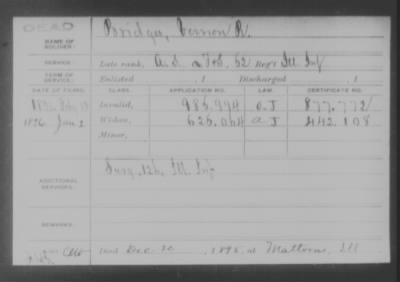 DEAD
NAME OF SOLDIER: Bridges, Vernon R.
SERVICE: Late rank, A. S. 2 Tob, 62 Reg't Ill Inf
TERM OF SERVICE: Enlisted , 1 Discharged , 1
DATE OF FILING. CLASS. APPLICATION NO. LAW. CERTIFICATE NO.
Invalid, 985,994 a. J 877,772
1896 Jan 2 Widow, 626,064 a. J 442,108
Minor,
ADDITIONAL SERVICES. Surg. 126, Ill. Inf
REMARKS. Died Dec. 1895, at Mattoon, Ill